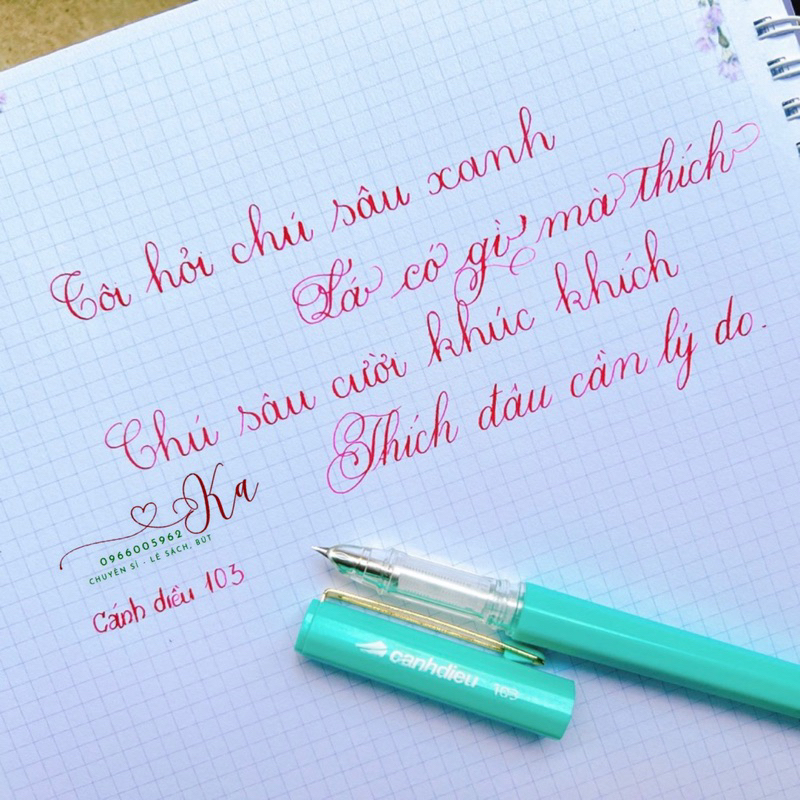 Tôi hỏi chú sâu xanh
Lá có gì mà thích
Chú sâu cười khúc khích
Thích đâu cần lý do.
Ka
0966005962
CHUYÊN SỈ - LẺ SÁCH, BÚT
Cánh diều 103
canhdieu 103